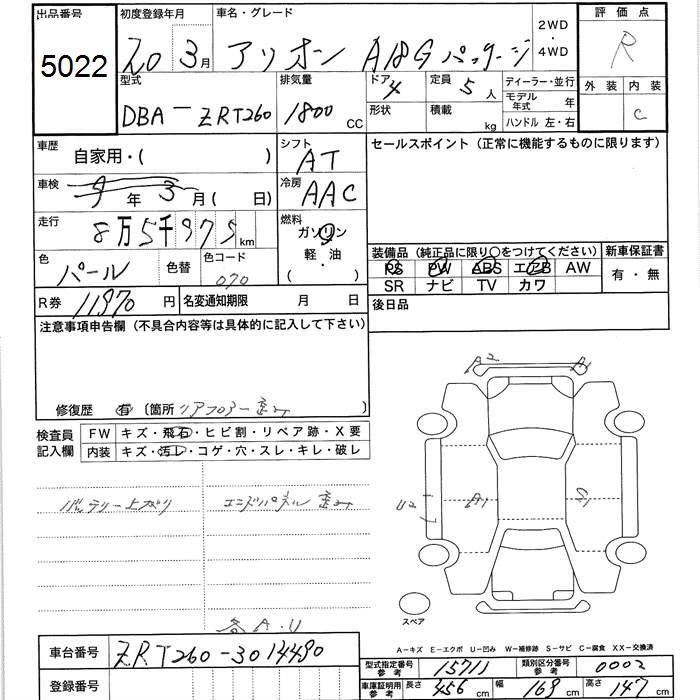 出品番号 初度登録年月 車名・グレード 2WD ・ 4WD 評価点
5022 20 3月 アリオン A18Gパッケージ R
型式 排気量 ドア 定員 ディーラー・並行 外装 内装
DBA-ZRT260 1800 CC 4 5人 モデル年式 年 C
形状 積載 kg ハンドル 左・右
車歴 自家用・( ) シフト AT セールスポイント (正常に機能するものに限ります)
車検 9年3月( 日) 冷房 AAC
走行 8万5千975km 燃料 ガソリン 軽・油 ( ・ )
装備品 (純正品に限り○をつけてください) 新車保証書
色 パール 色替 色コード 070 PS PW ABS エアB AW 有・無
SR ナビ TV カワ
R券 11970円 名変通知期限 月 日 後日品
注意事項申告欄 (不具合内容等は具体的に記入して下さい)
修復歴 有 [箇所 リアフロアー歪み
検査員記入欄 FW キズ・飛石・ヒビ割・リペア跡・X要
内装 キズ・汚レ・コゲ・穴・スレ・キレ・破レ
バッテリー上がり エンドパネル歪み
各A.U
A2 A1
U2 A1 S1
スペア
A-キズ E-エクボ U-凹み W-補修跡 S-サビ C-腐食 XX-交換済
車台番号 ZRT260-3014490
型式指定番号 参考 15711 類別区分番号 参考 0002
登録番号 車庫証明用 参考 長さ 456cm 幅 169cm 高さ 147cm